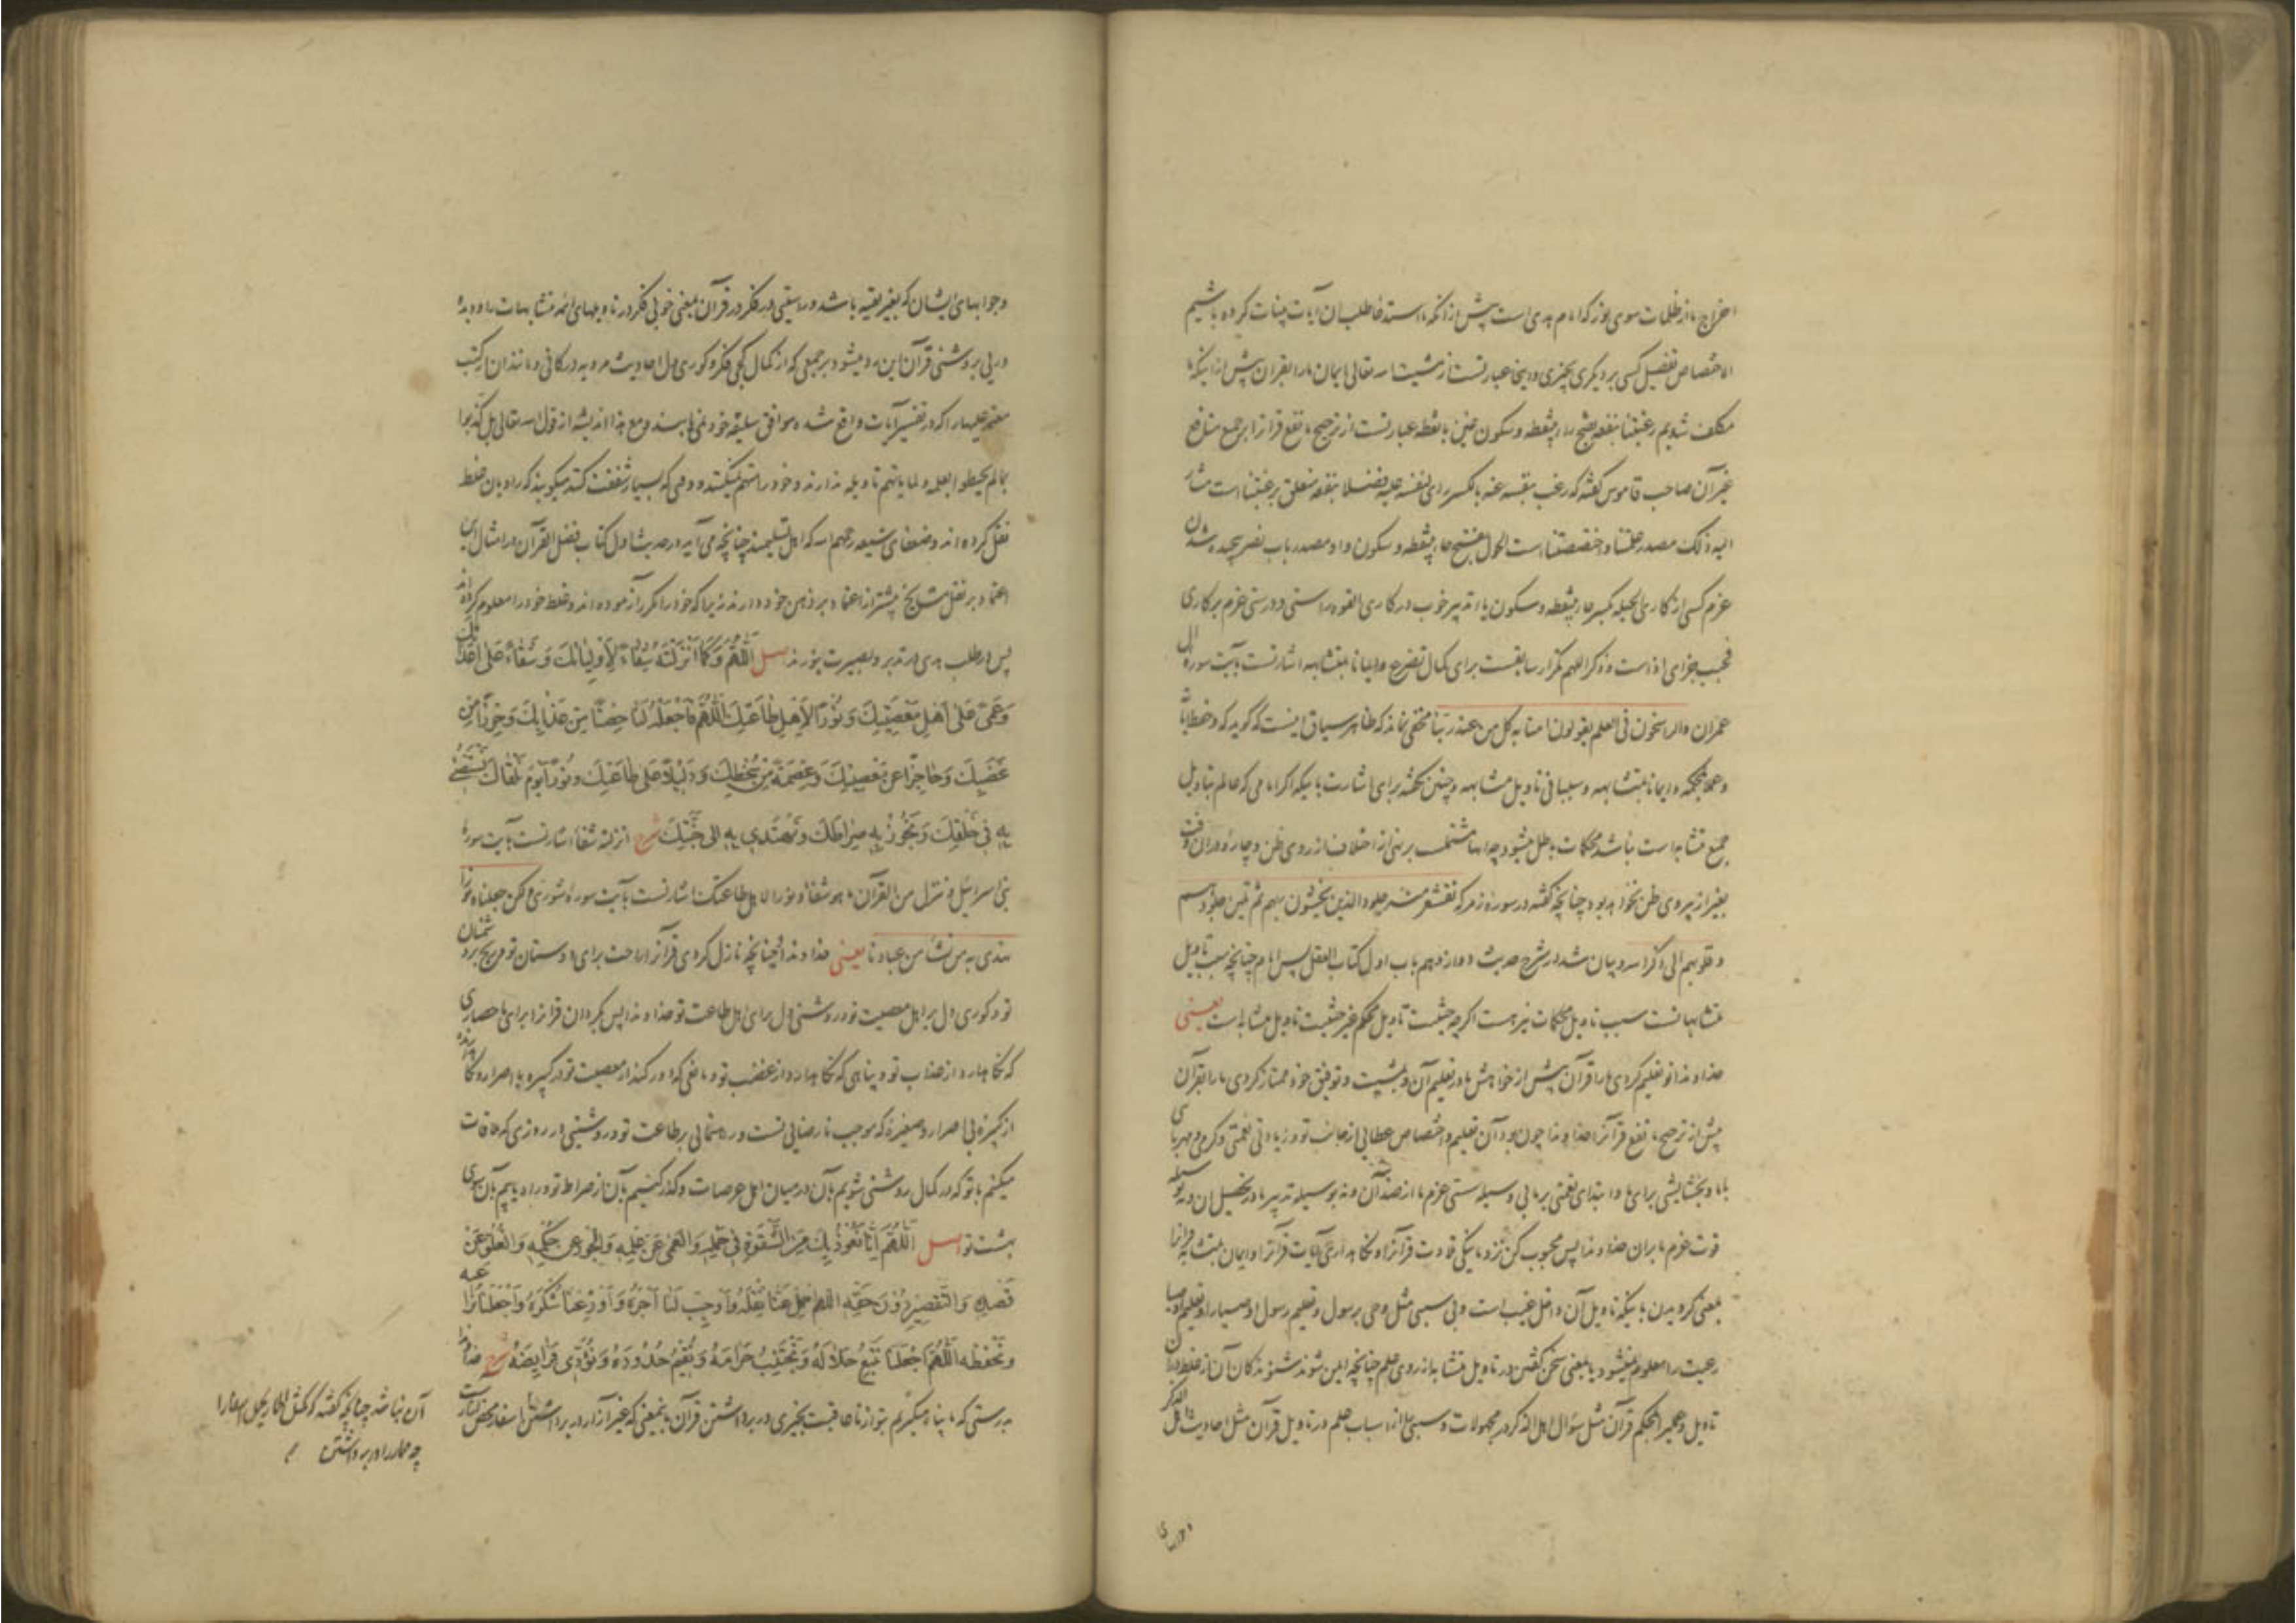 اخراج ما از ظلمات سوی نور که امام هدی است پیش از آنکه ما استدعا طلب آن آیات بینات کرده باشیم
الاختصاص تفضیل کسی بر دیگری بچیزی و اینجا عبارتست از مشیت الله تعالی ایمان ما را بقرآن پیش از اینکه ما
مکلف شویم رغبتنا بنفعه بفتح راء بینقطه و سکون غین با نقطه عبارتست از ترجیح ما نفع قرآن را بر جمیع منافع
غیر آن صاحب قاموس گفته که رغب بنفسه عنه بالکسر رای لنفسه علیه فضلا بنفعه متعلق برغبتنا است مشار
الیه ذلک مصدر علمتنا و اختصصتنا است الحول بفتح حاء بینقطه و سکون واو مصدر باب نصر پیچیده شدن
عزم کسی از کاری الحیله بکسر حاء بینقطه و سکون یاء تدبیر خوب در کاری القوه راستی و درستی عزم بر کاری
فحبب جزای اذا است و ذکر اللهم تکرار سابقست برای کمال تضرع و ایمانا بمتشابهه اشارتست بآیت سوره آل
عمران والراسخون فی العلم یقولون آمنا به کل من عند ربنا مخفی نماند که ظاهر سیاق اینست که گوید که و حفظا لآیاته
و عملا بمحکمه و ایمانا بمتشابهه و سببا فی تاویل متشابهه و چنین نگفته برای اشارت باینکه اگر امامی که عالم بتاویل
جمیع متشابه است نباشد محکمات باطل میشود چه آنها مشتمل بر نهی از اختلاف از روی ظن و چاره در آن وقت
بغیر از پیروی ظن نخواهد بود چنانچه گفته در سوره زمر که تقشعر منه جلود الذین یخشون ربهم ثم تلین جلودهم
و قلوبهم الی ذکر الله و بیان شد در شرح حدیث دوازدهم باب اول کتاب العقل پس امام چنانچه سبب تاویل
متشابهاتست سبب تاویل محکمات نیز هست اگر چه حیثیت تاویل محکم غیر حیثیت تاویل متشابه است یعنی
خداوندا تو تعلیم کردی ما را قرآن پیش از خواهش ما در تعلیم آن و بمشیت و توفیق خود ممتاز کردی ما را بقرآن
پیش از ترجیح ما نفع قرآن را خداوندا چون بود آن تعلیم و اختصاص عطایی از جانب تو و زیادتی نعمتی و کرمی و مهربانی
با ما و بخشایشی برای ما و ابتدای نعمتی بر ما بی وسیله سستی عزم ما از ضد آن و نه بوسیله تدبیر ما در تحصیل آن و نه بوسیله
قوت عزم ما بر آن خداوندا پس محبوب کن نزد ما نیکی تلاوت قرآن را و نگاهداری آیات قرآن را و ایمان بمتشابه قرآن را
بمعنی گرویدن باینکه تاویل آن داخل غیب است و بی سببی مثل وحی برسول و تعلیم رسول اوصیا را و تعلیم اوصیا
رعیت را معلوم نمیشود یا بمعنی سخن گفتن در تاویل متشابه از روی علم چنانچه ایمن شوند شنوندکان آن از غلط در آن
تاویل و بغیر المحکم قرآن مثل سؤال اهل الذکر در مجهولات و سببی از اسباب علم در تاویل قرآن مثل احادیث اهل الذکر
و جوابهای
و جوابهای ایشان که بغیر تقیه باشد و راستیی در فکر در قرآن بمعنی خوبی فکر در تاویلهای ائمه متشابهات را و دیده
دریی بروشنی قرآن این رد میشود بر جمعی که از کمال کجی فکر و کوری دل احادیث مرویه در کافی و مانند آن از کتب
معتبر علیها را که در تفسیر آیات واقع شده موافق سلیقه خود نمی‌یابند و مع هذا اندیشه از قول الله تعالی بل کذبوا
بما لم یحیطوا بعلمه و لما یاتهم تاویله ندارند و خود را متهم نمیکنند و وقتی که بسیار شفقت کنند میگویند که راویان غلط
نقل کرده‌اند و ضعفای شیعه رحمهم الله که اهل تسلیمند چنانچه می‌آید در حدیث اول کتاب فضل القرآن در امثال این
اعتماد بر نقل مشایخ بیشتر از اعتماد بر ذهن خود دارند زیرا که خود را مکرر آزموده‌اند و غلط خود را معلوم کرده‌اند
پس در طلب هدی در تدبر و بصیرت بورزند اصل اَللّهُمَّ وَ كَمَا اَنْزَلْتَهُ شِفَاءً لِاَوْلِيَائِكَ وَ شِقَاءً عَلَى اَعْدَائِكَ
وَ عَمًى عَلَى اَهْلِ مَعْصِيَتِكَ وَ نُورًا لِاَهْلِ طَاعَتِكَ اَللّهُمَّ فَاجْعَلْهُ لَنَا حِصْنًا مِنْ عَذَابِكَ وَ حِرْزًا مِنْ
غَضَبِكَ وَ حَاجِزًا عَنْ مَعْصِيَتِكَ وَ عِصْمَةً مِنْ سَخَطِكَ وَ دَلِيلًا عَلَى طَاعَتِكَ وَ نُورًا يَوْمَ نَلْقَاكَ نَسْتَضِيءُ
بِهِ فِي خَلْقِكَ وَ نَجُوزُ بِهِ صِرَاطَكَ وَ نَهْتَدِي بِهِ اِلَى جَنَّتِكَ شرح انزلته شفاء اشارتست بآیت سوره
بنی اسرائیل و ننزل من القرآن ما هو شفاء و نورا لاهل طاعتک اشارتست بآیت سوره شوری و لکن جعلناه نورا
نهدی به من نشاء من عبادنا یعنی خداوندا چنانچه نازل کردی قرآن را راحت برای دوستان تو و رنج بر دشمنان
تو و کوری دل بر اهل معصیت تو و روشنی دل برای اهل طاعت تو خداوندا پس بگردان قرآن را برای ما حصاری
که نگاهدارد از عذاب تو و پناهی که نگاهدارد از غضب تو و مانعی که دور کند از معصیت تو در کبیره با اصرار و نگاهدارنده
از کبیره بی اصرار و صغیره که موجب نارضایی تست و رهنمایی بر طاعت تو و روشنیی در روزی که ملاقات
میکنیم با تو که در کمال روشنی شویم بآن در میان اهل عرصات و گذر کنیم بآن از صراط تو و راه یابیم بآن سوی
بهشت تو اصل اَللّهُمَّ اِنَّا نَعُوذُ بِكَ مِنَ الشِّقْوَةِ فِي حَمْلِهِ وَ الْعَمَى عَنْ عِلْمِهِ وَ الْجَوْرِ عَنْ حُكْمِهِ وَ الْعُلُوِّ عَنْ
قَصْدِهِ وَ التَّقْصِيرِ دُونَ حَقِّهِ اَللّهُمَّ احْمِلْ عَنَّا ثِقْلَهُ وَ اَوْجِبْ لَنَا اَجْرَهُ وَ اَوْزِعْنَا شُكْرَهُ وَ اجْعَلْنَا نُرَاعِيهِ
وَ نَحْفَظُهُ اَللّهُمَّ اجْعَلْنَا نَتَّبِعُ حَلَالَهُ وَ نَجْتَنِبُ حَرَامَهُ وَ نُقِيمُ حُدُودَهُ وَ نُؤَدِّي فَرَايِضَهُ شرح خداوندا
بدرستی که ما پناه میگیریم بتو از ناعاقبت بخیری در برداشتن قرآن بمعنی که غیر آزار در برداشتن اسفار محض
آن نباشد چنانچه گفته که کمثل الحمار یحمل اسفارا
چه حمار را در برداشتن